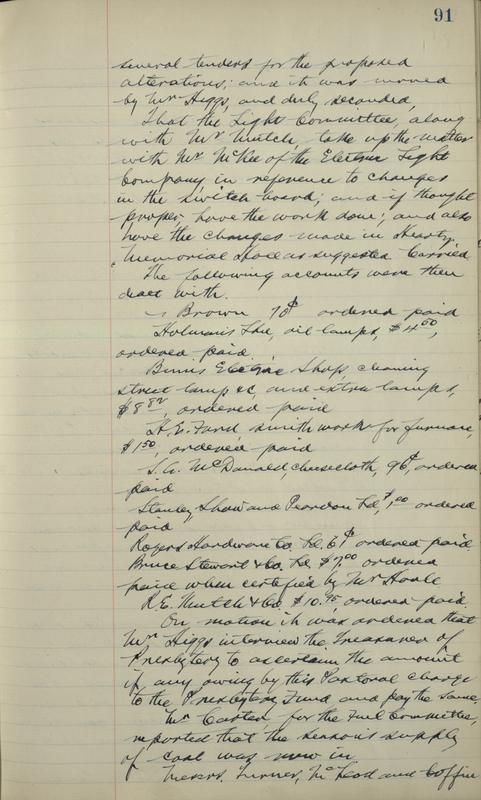 91
several tenders for the proposed
alterations; and it was moved
by Mr Higgs, and duly seconded,
That the Light Committee, along
with Mr Mutch, take up the matter
with Mr. McKee of the Electric Light
Company in reference to changes
in the switch board; and if thought
proper, have the work done; and also
have the changes made in
Memorial as suggested Carried
The following accounts were then
dealt with.
Brown 70¢ ordered paid
Holman's Ltd, oil lamps, $4.00,
ordered paid
Binns Electric Shop, cleaning
street lamp &c, and extra lamps,
$8.82, ordered paid
H. E. Ford smith work for furnace,
$1.50, ordered paid
McDonald, cheesecloth, 96¢, ordered
paid
Stanley, Shaw and Peardon Ltd, ordered
paid
Rogers Hardware Co. Ltd. 6¢ ordered paid
Bruce Stewart & Co. Ltd ordered
paid when certified by Mr
R. E. Mutch & Co $10.75, ordered paid.
On motion it was ordered that
Mr Higgs interview the Treasurer of
Presbytery to ascertain the amount
if any owing by this Pastoral charge
to the Presbytery Fund and pay the same.
Mr Carter, for the Fuel Committee,
reported that the season's supply
of coal was now in
Messrs. Turner, McLeod and Coffin